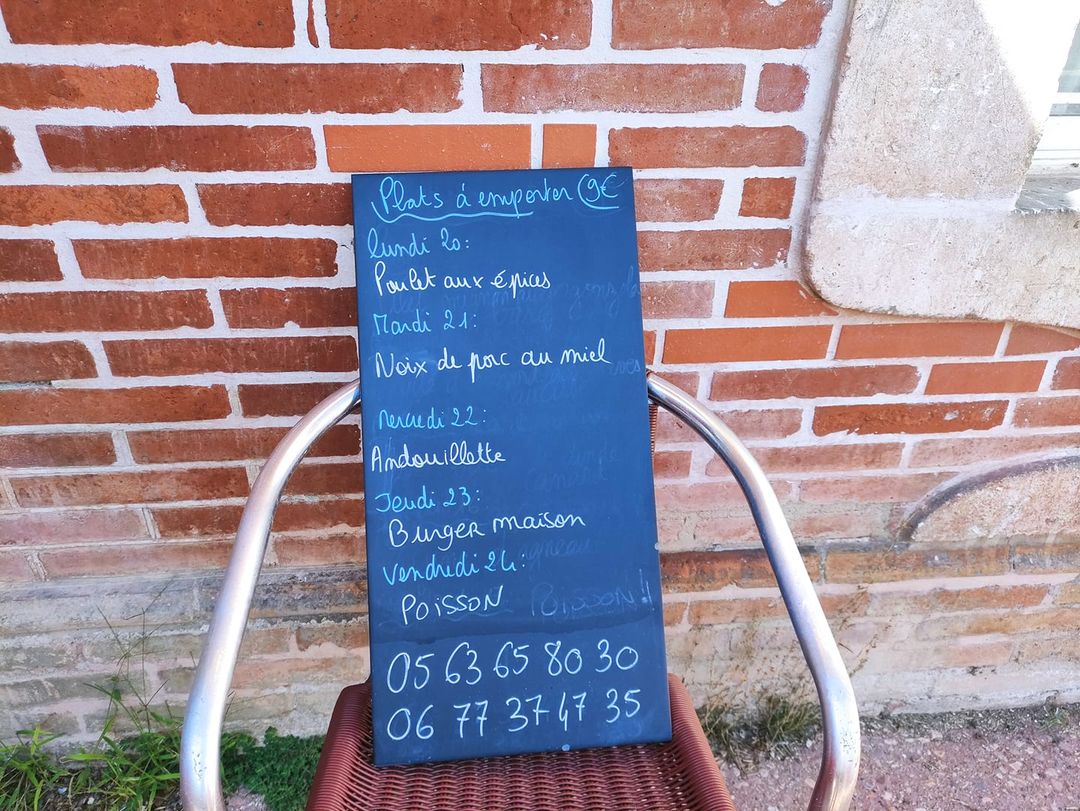 Plats à emporter 9€
lundi 20:
Poulet aux épices
Mardi 21:
Noix de porc au miel
Mercredi 22:
Andouillette
Jeudi 23:
Burger maison
Vendredi 24:
Poisson Poisson
05 63 65 80 30
06 77 37 47 35